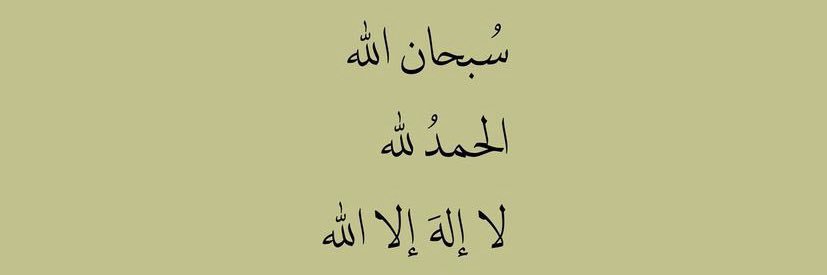 سُبحان الله
الحمدُ لله
لا إلهَ إلا الله